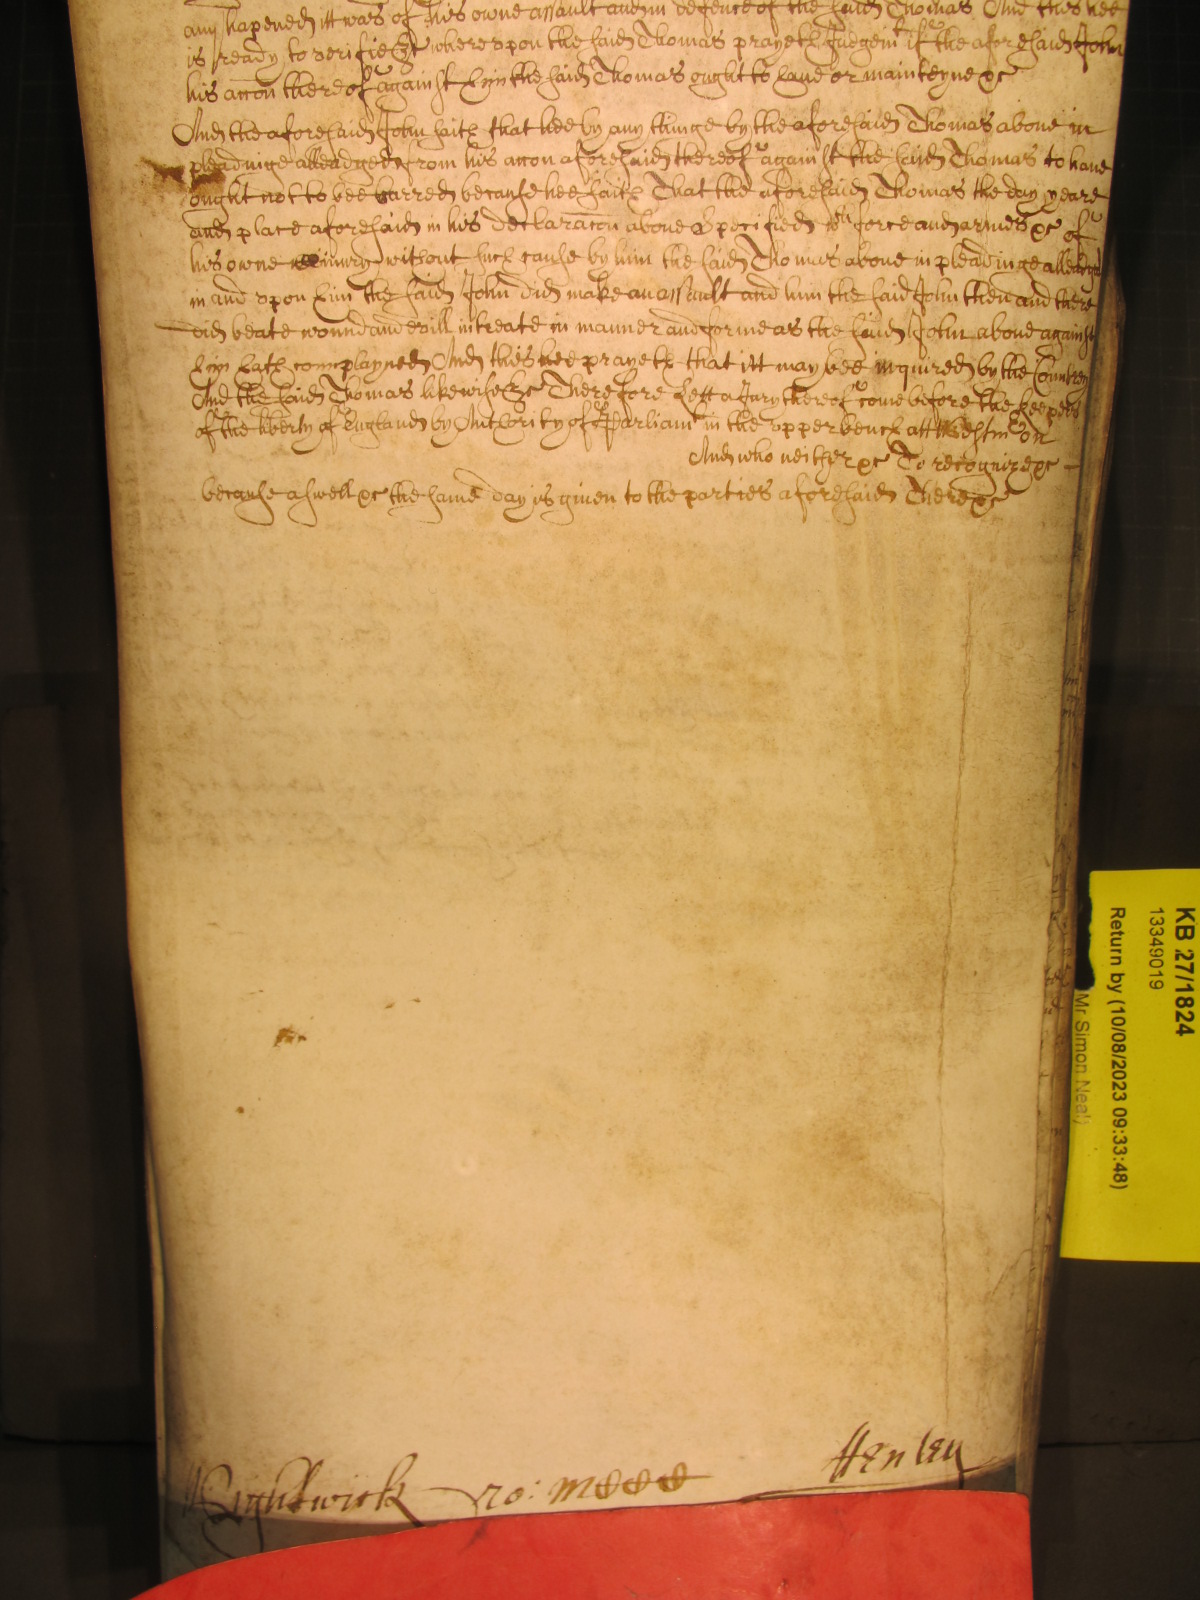 any hapened itt was of his owne assault and in defence of the said Thomas And this hee
is ready to verifie &c whereupon the said Thomas prayeth Judgemt if the aforesaid John
his accon thereof against him the said Thomas ought to have or mainteyne &c
And the aforesaid John saith that hee by any thinge by the aforesaid Thomas above in
pleadinge alleadged from his accon aforesaid thereof against the said Thomas to have
ought not to bee barred because hee saith That the aforesaid Thomas the day yeare
and place aforesaid in his declaracon above specified wth force and armes &c of
his owne iniury without such cause by him the said Thomas above in pleadinge alleadged
in and upon him the said John did make an assault and him the said John then and there
did beate wound and evill intreate in manner and forme as the said John above against
him hath complayned And this hee prayeth that itt may bee inquired by the Countrey
And the said Thomas likewise &c Therefore Lett a Jury thereof come before the Keepers
of the liberty of England by Authority of Parliamt in the upper bench att Westmr on
And who neither &c To recognize &c
because aswell &c the same day is given to the parties aforesaid There &c
Rightwick ro: Henley
KB 27/1824
13349019
Return by (10/08/2023 09:33:48)
Mr Simon Neal)